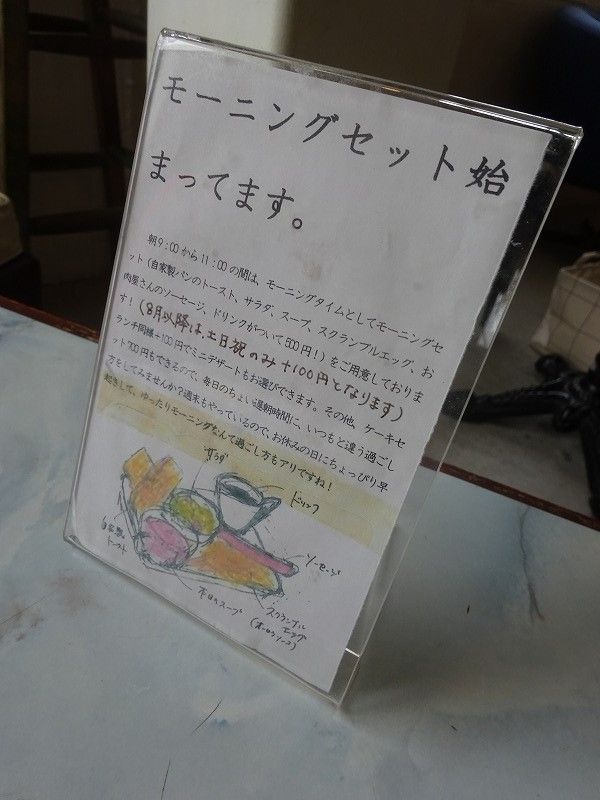 モーニングセット始
まってます。
朝9:00から11:00の間は、モーニングタイムとしてモーニングセ
ット(自家製パンのトースト、サラダ、スープ、スクランブルエッグ、お
肉屋さんのソーセージ、ドリンクがついて500円!)をご用意しておりま
す!(8月以降は、土日祝のみ+100円となります)
ランチ同様+100円でミニデザートもお選びできます。その他、ケーキセ
ット700円もできるので、毎日のちょい遅朝時間に、いつもと違う過ごし
方をしてみませんか?週末もやっているので、お休みの日にちょっぴり早
起きして、ゆったりモーニングなんて過ごし方もアリですね!
サラダ
ドリンク
自家製
トースト
ソーセージ
本日のスープ
スクランブル
エッグ